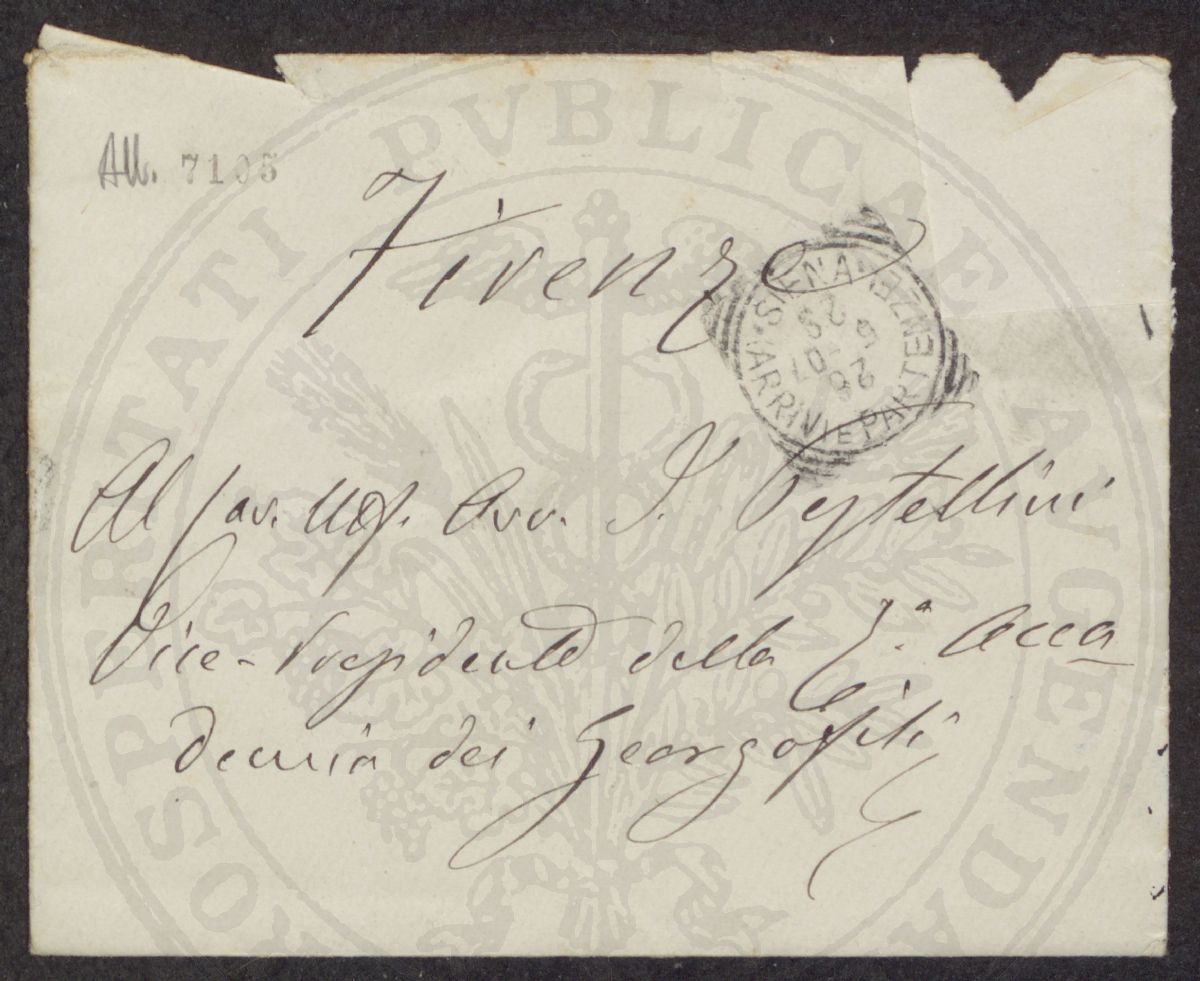 All. 7105
Firenze
SIENA ARRIVI E PARTENZE
26 6 07 23
Al Cav. Uff. Avv. I. Pestellini
Vice-Presidente della R.a Acca
demia dei Georgofili
PROSPERITATI PVBLICAE AVGENDAE